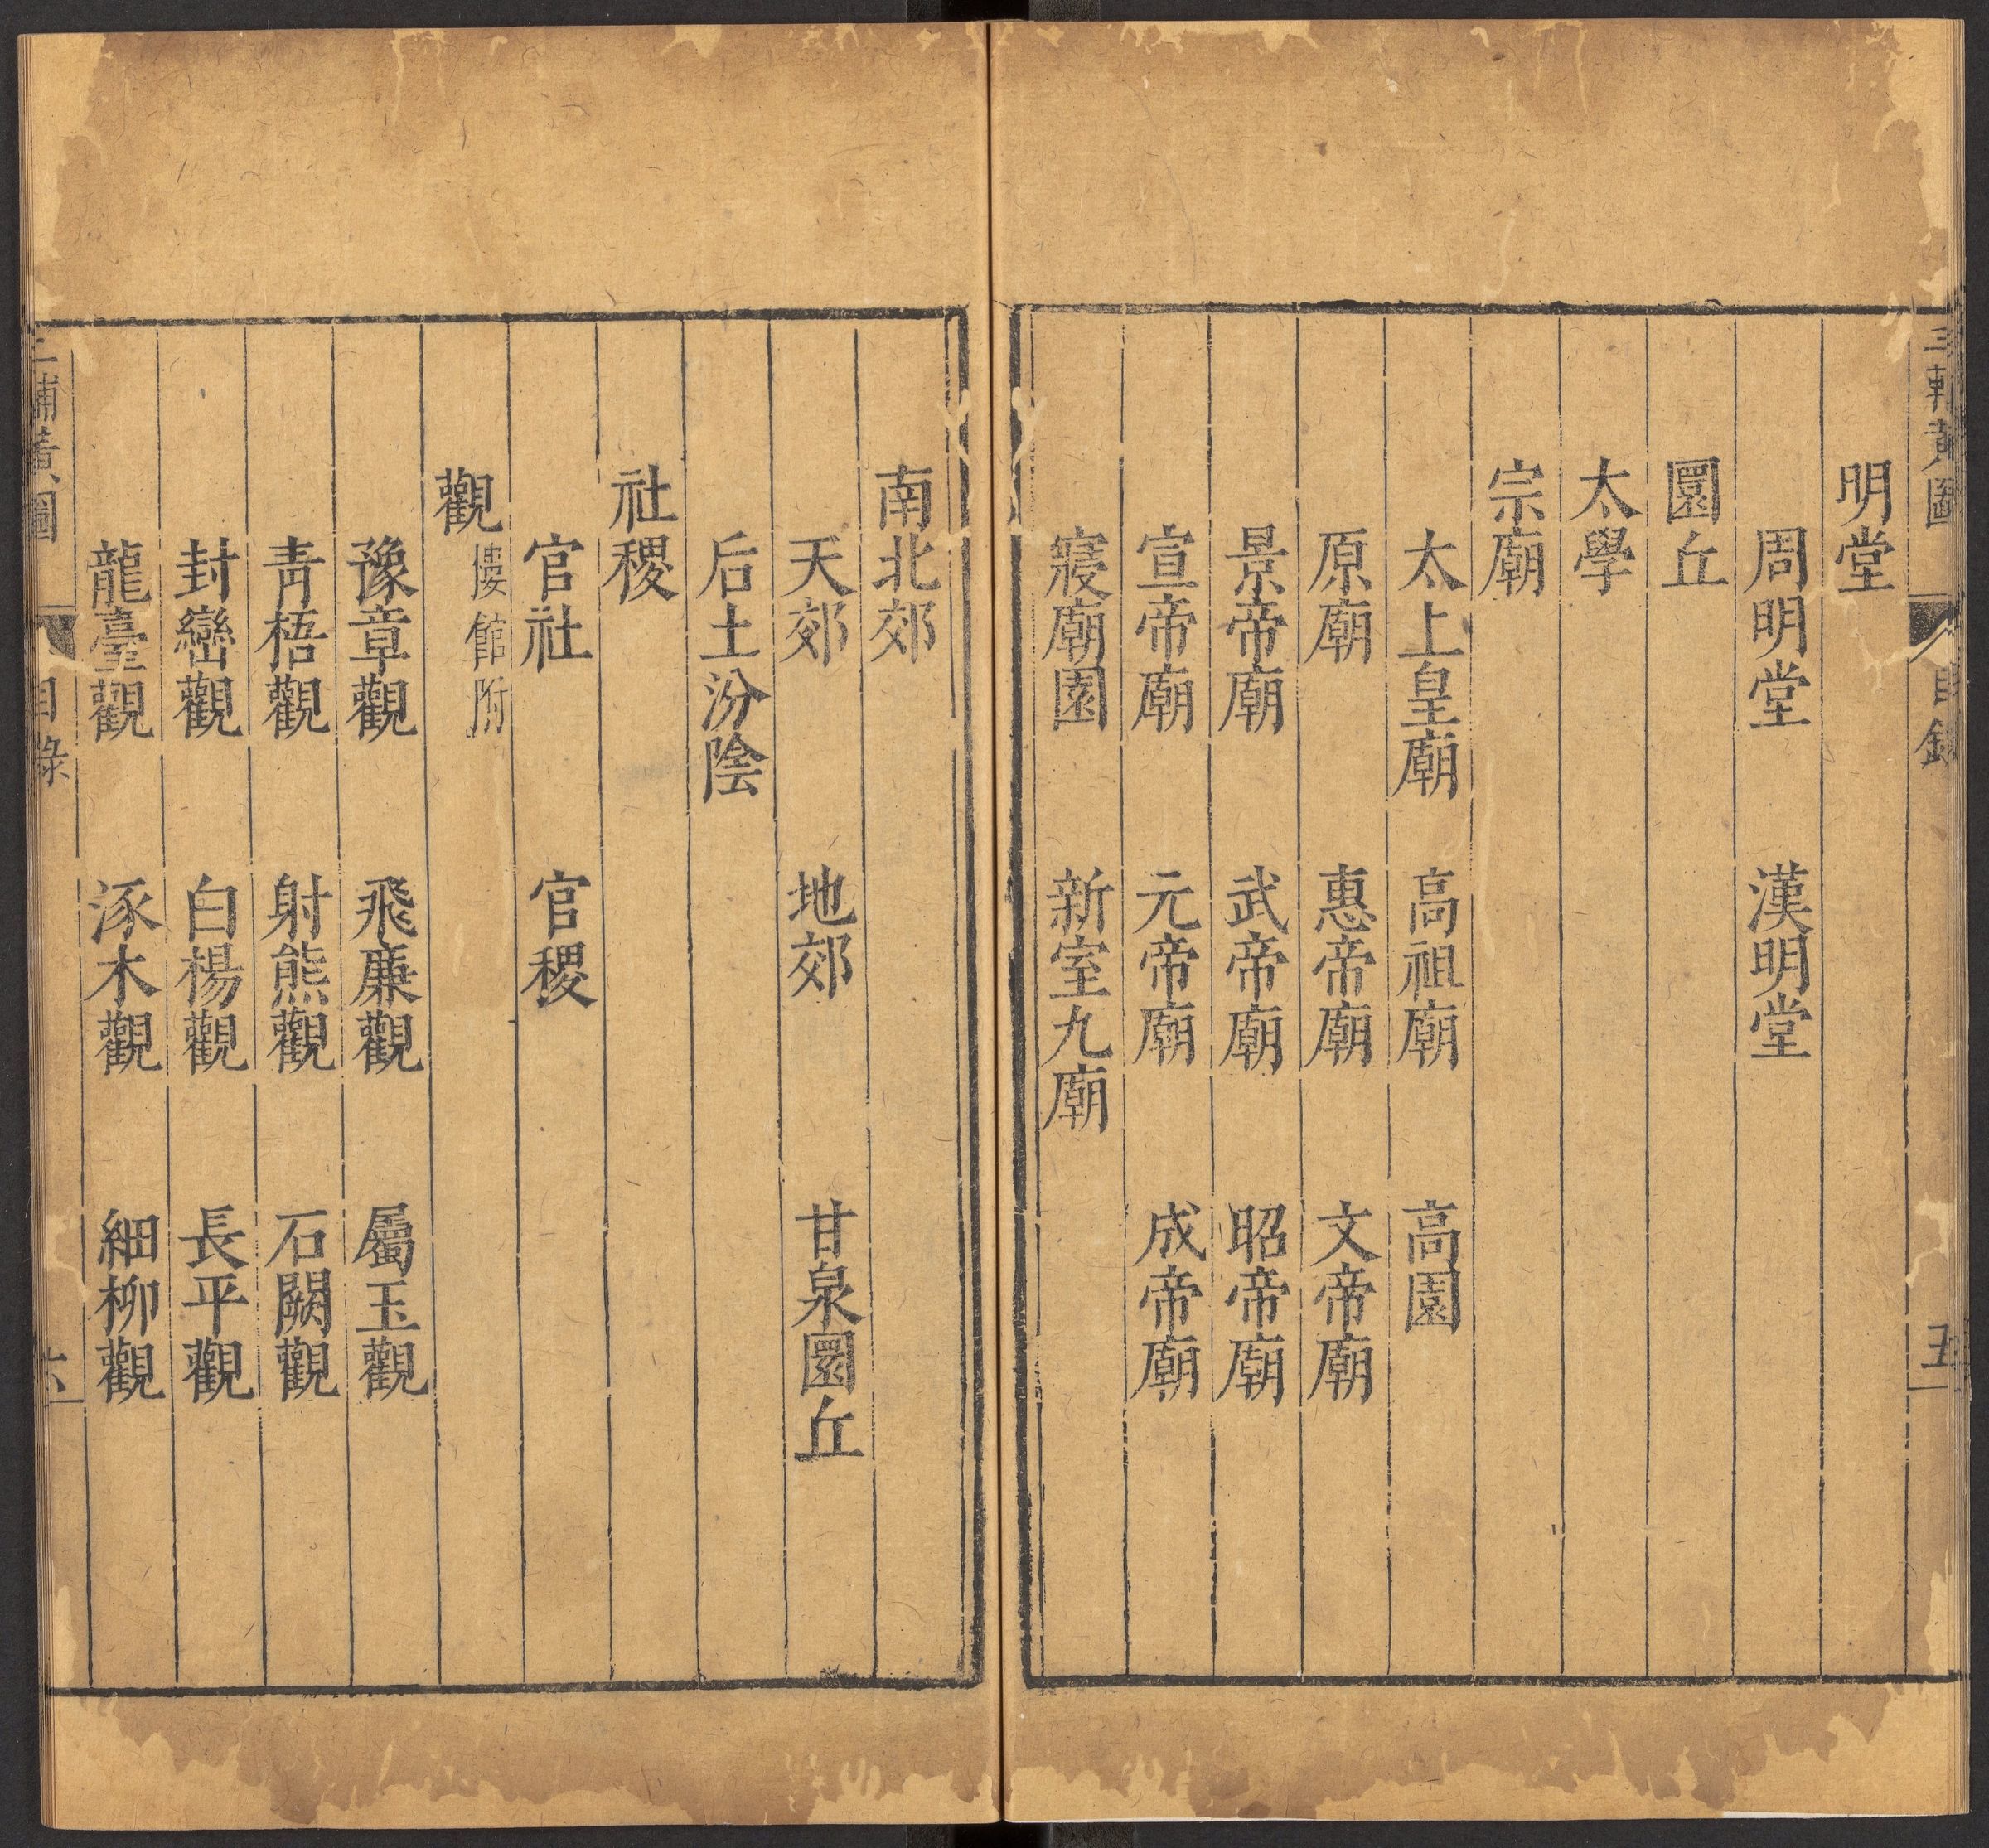 三輔黃圖
目錄
五
明堂
周明堂 漢明堂
圜丘
太學
宗廟
太上皇廟 高祖廟 高園
原廟 惠帝廟 文帝廟
景帝廟 武帝廟 昭帝廟
宣帝廟 元帝廟 成帝廟
寢廟園 新室九廟
南北郊
天郊 地郊 甘泉圜丘
后土汾陰
社稷
官社 官稷
觀 館附
豫章觀 飛廉觀 屬玉觀
青梧觀 射熊觀 石闕觀
封巒觀 白楊觀 長平觀
龍臺觀 涿木觀 細柳觀
三輔黃圖
目錄
六